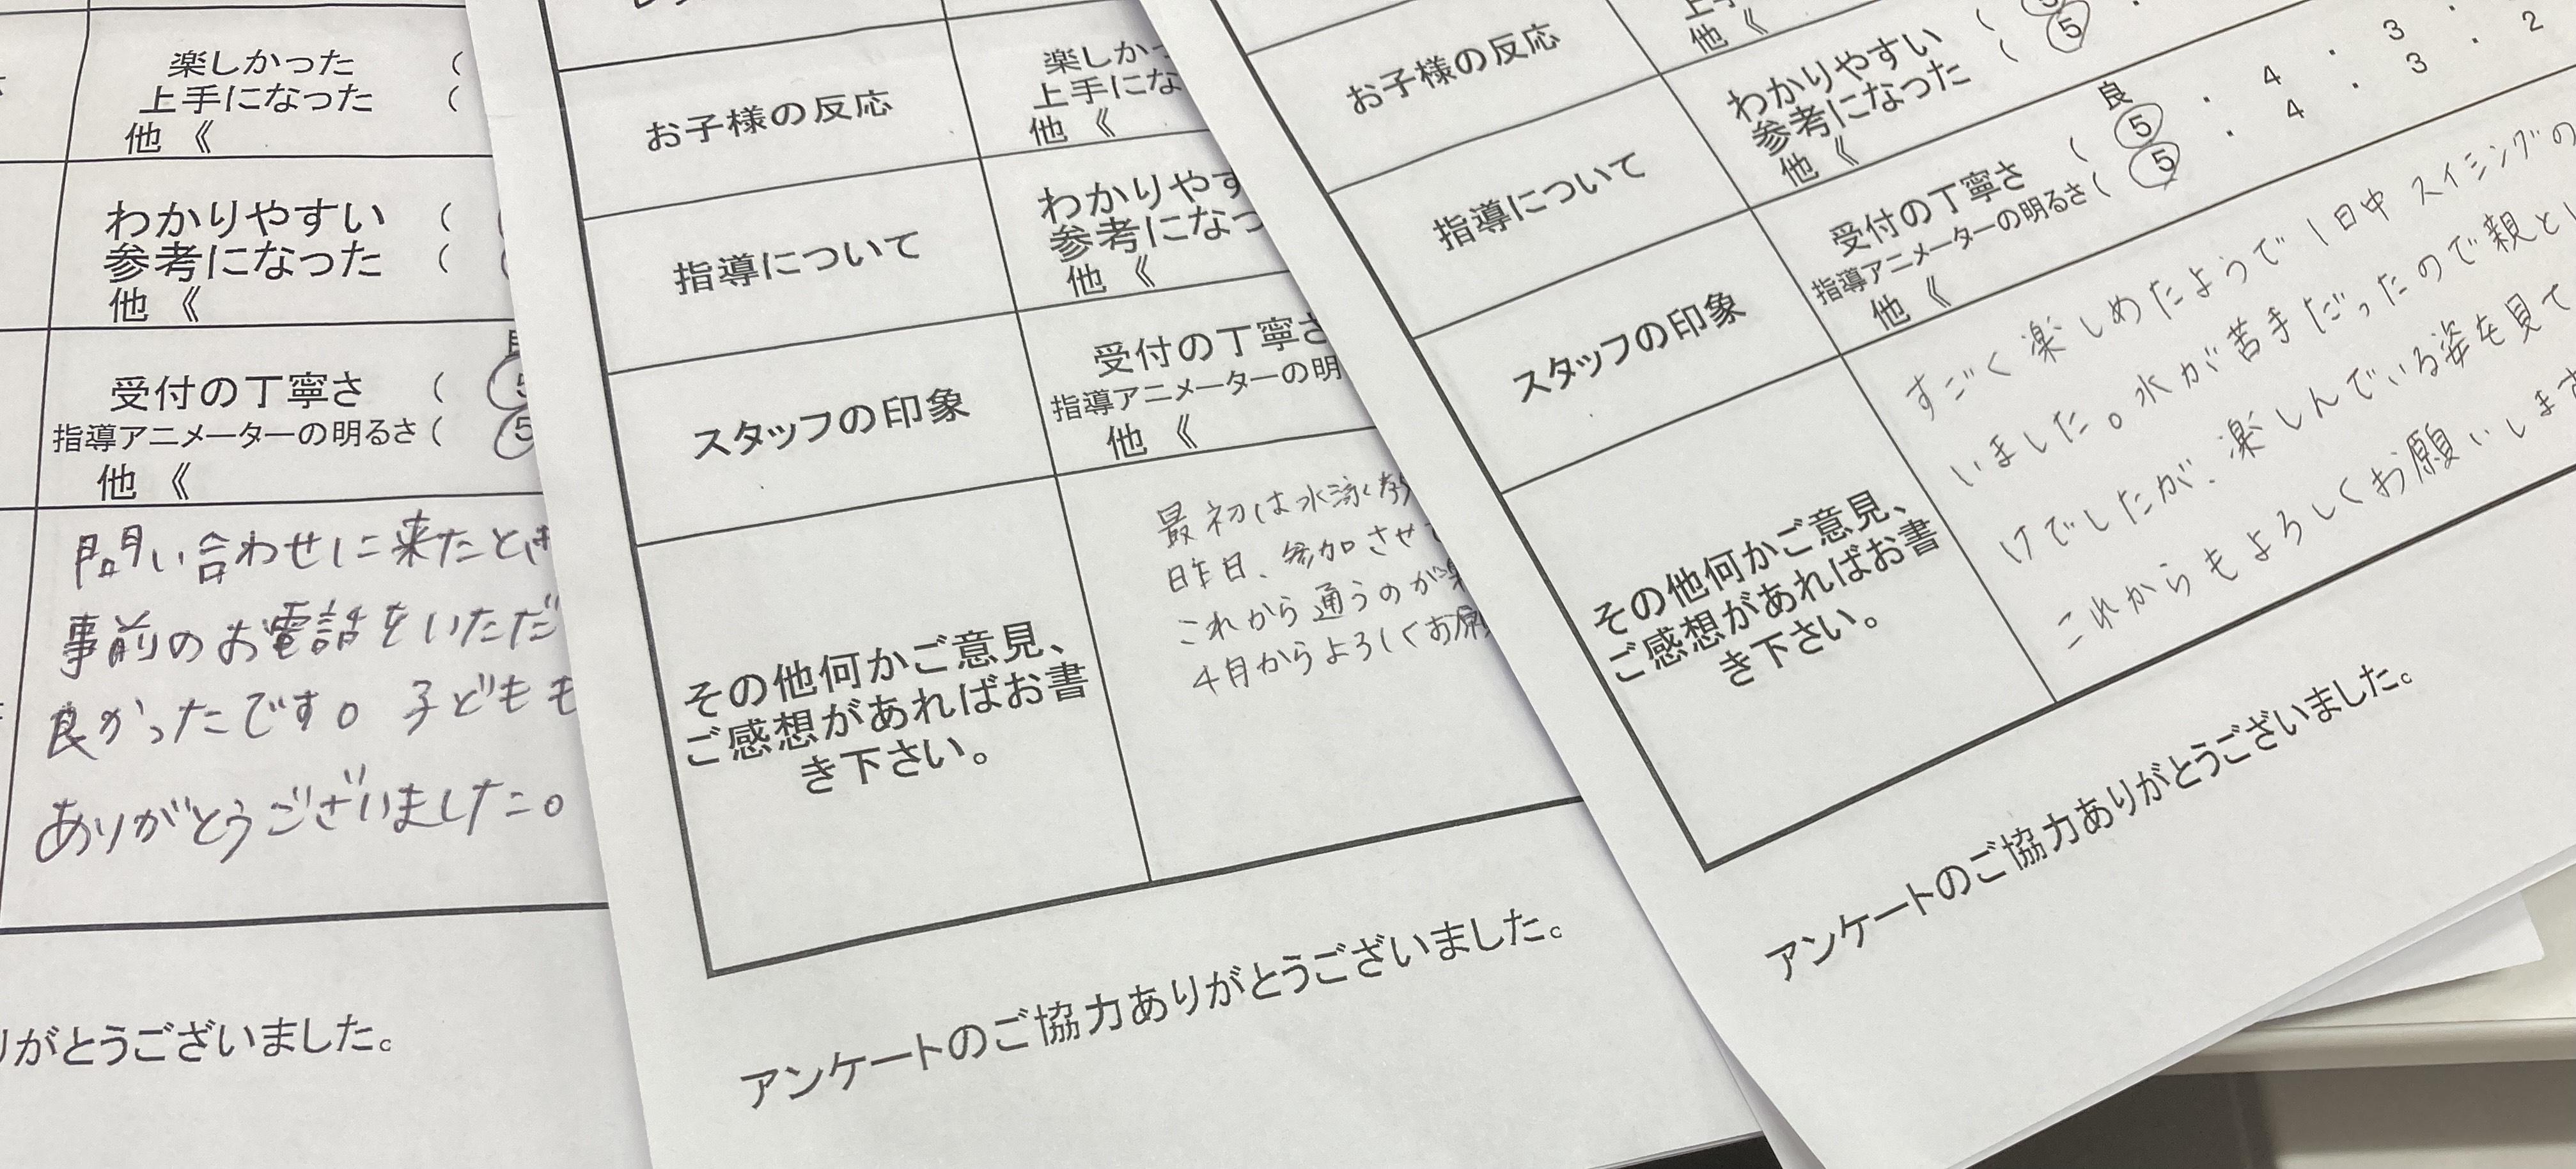 楽しかった (
上手になった (
他 《
わかりやすい (
参考になった (
他 《
受付の丁寧さ ( 5
指導アニメーターの明るさ ( 5
他 《
問い合わせに来たとき
事前のお電話をいただ
良かったです。子どもも
ありがとうございました。
りがとうございました。
お子様の反応
楽しかっ
上手にな
他 《
指導について
わかりやす
参考になっ
他 《
スタッフの印象
受付の丁寧さ
指導アニメーターの明
他 《
その他何かご意見、
ご感想があればお書
き下さい。
最初は水泳
昨日、参加させ
これから通うのが楽
4月からよろしくお願
アンケートのご協力ありがとうございました。
お子様の反応
上手
他 《
指導について
わかりやすい (
参考になった ( 5
他 《
スタッフの印象
良
受付の丁寧さ ( 5 ・ 4 ・ 3 ・
指導アニメーターの明るさ ( 5 ・ 4 ・ 3 ・ 2
他 《
その他何かご意見、
ご感想があればお書
き下さい。
すごく楽しめたようで1日中スイミングの
いました。水が苦手だったので親とし
けでしたが、楽しんでいる姿を見て
これからもよろしくお願いします
アンケートのご協力ありがとうございました。